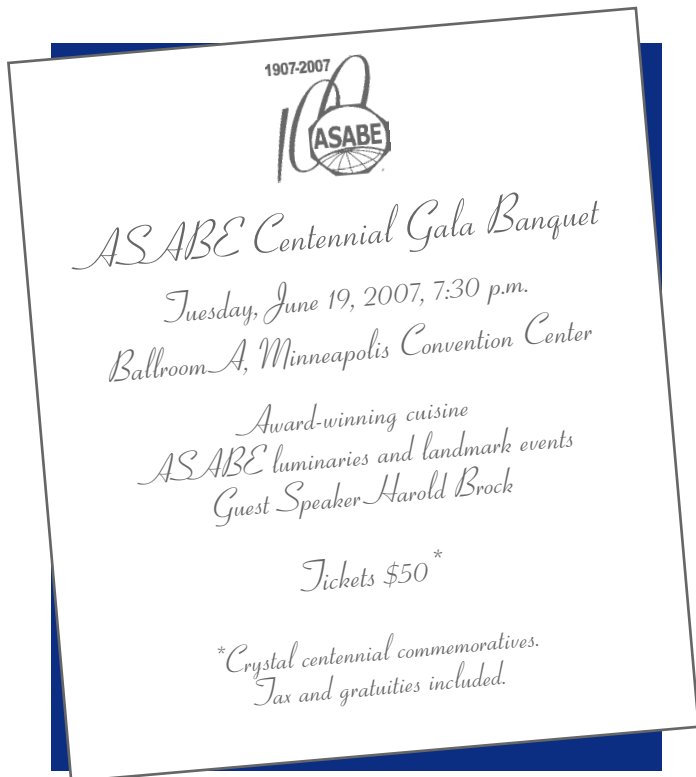 1907-2007
100
ASABE
ASABE Centennial Gala Banquet
Tuesday, June 19, 2007, 7:30 p.m.
Ballroom A, Minneapolis Convention Center
Award-winning cuisine
ASABE luminaries and landmark events
Guest Speaker Harold Brock
Tickets $50*
*Crystal centennial commemoratives.
Tax and gratuities included.